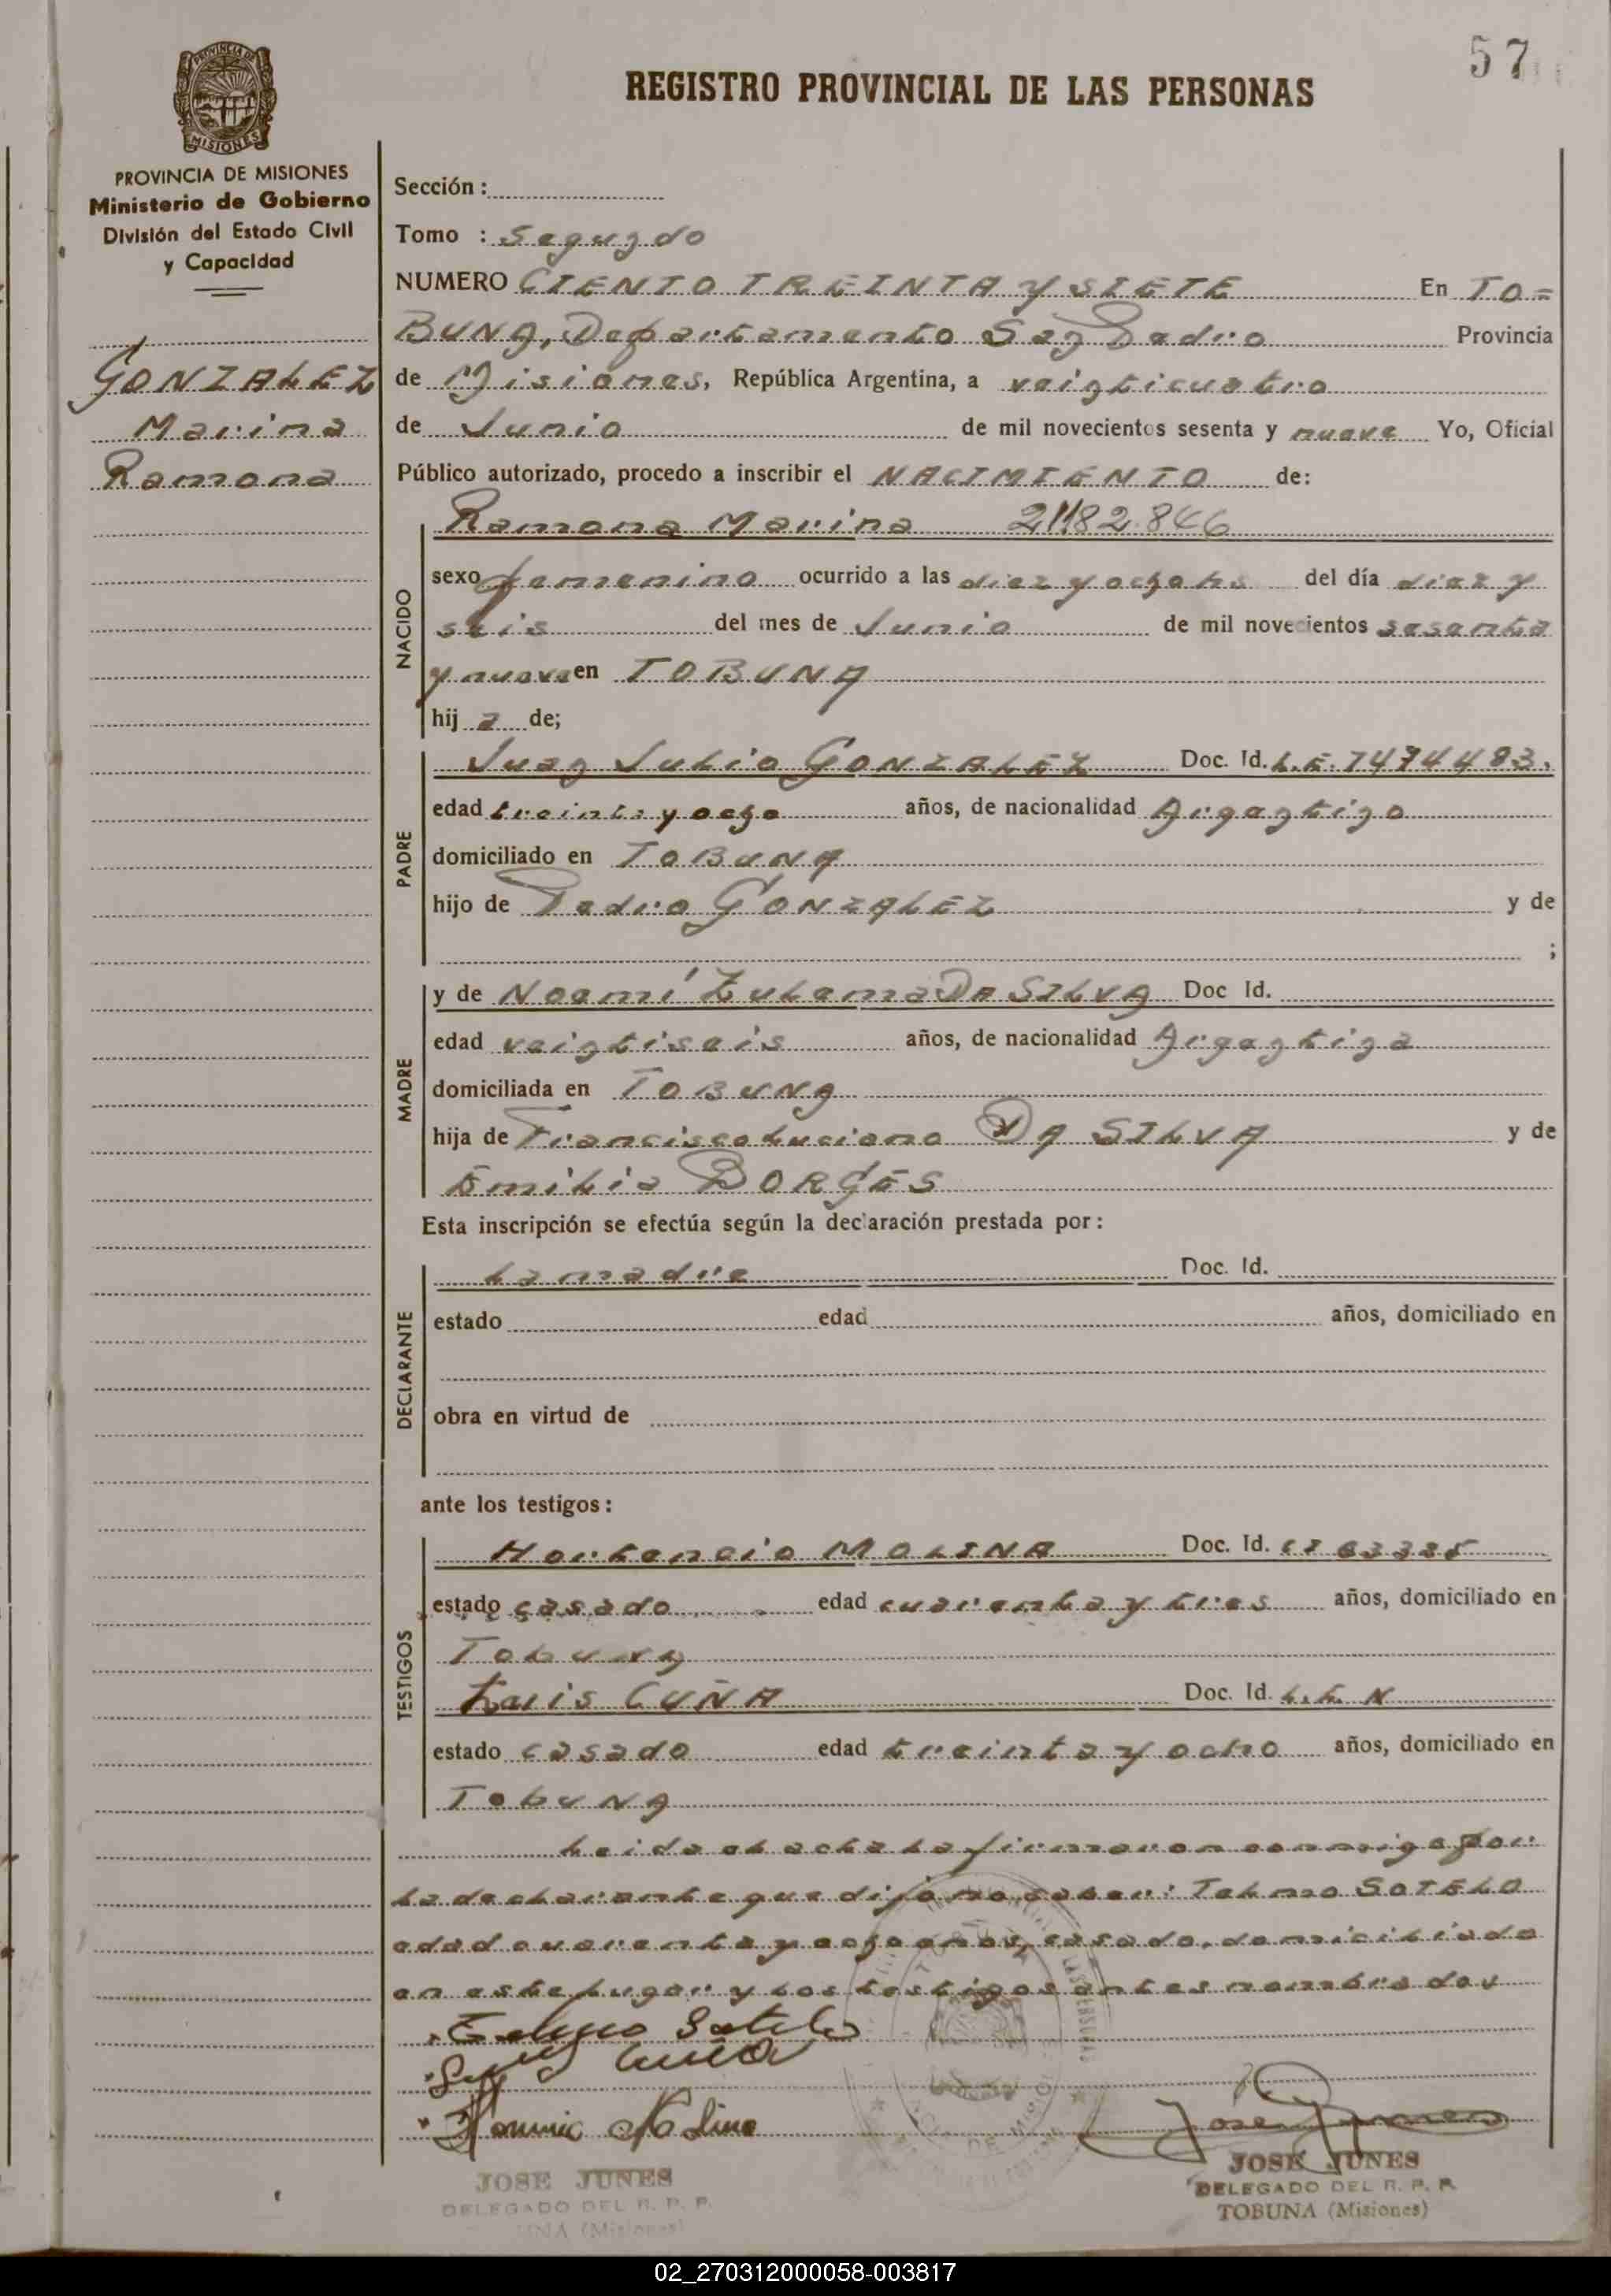 57
REGISTRO PROVINCIAL DE LAS PERSONAS
PROVINCIA DE MISIONES
Ministerio de Gobierno
División del Estado Civil
y Capacidad
GONZALEZ
Marina
Ramona
Sección:
Tomo : Segundo
NUMERO CIENTO TREINTA Y SIETE En TO=
BUNA, Departamento San Pedro Provincia
de Misiones, República Argentina, a veinticuatro
de Junio de mil novecientos sesenta y nueve Yo, Oficial
Público autorizado, procedo a inscribir el NACIMIENTO de:
NACIDO
Ramona Marina 21182.846
sexo femenino ocurrido a las diez y ocho hs del día diez y
seis del mes de Junio de mil novecientos sesenta
y nueve en TOBUNA
hij a de;
PADRE
Juan Julio GONZALEZ Doc. Id. L.E. 7474483.
edad treinta y ocho años, de nacionalidad Argentino
domiciliado en TOBUNA
hijo de Pedro GONZALEZ y de
;
MADRE
y de Noemí Zulema DA SILVA Doc Id.
edad veintiseis años, de nacionalidad Argentina
domiciliada en TOBUNA
hija de Francisco Luciano DA SILVA y de
Emilia BORGES
Esta inscripción se efectúa según la declaración prestada por:
DECLARANTE
La madre Doc. Id.
estado edad años, domiciliado en
obra en virtud de
ante los testigos:
TESTIGOS
Hortencio MOLINA Doc. Id.
estado casado edad cuarenta y tres años, domiciliado en
Tobuna
Luis CUÑA Doc. Id.
estado casado edad treinta y ocho años, domiciliado en
Tobuna
Leida el acta la firmaron conmigo por
la declarante que dijo no saber: Telmo SOTELO
edad cuarenta y ocho años, casado, domiciliado
en este lugar y los testigos antes nombrados
Telmo Sotelo
Cuña
Molina
JOSE JUNES
DELEGADO DEL R. P. P.
UNA (Misiones)
JOSE JUNES
DELEGADO DEL R. P. P.
TOBUNA (Misiones)
02_270312000058-003817